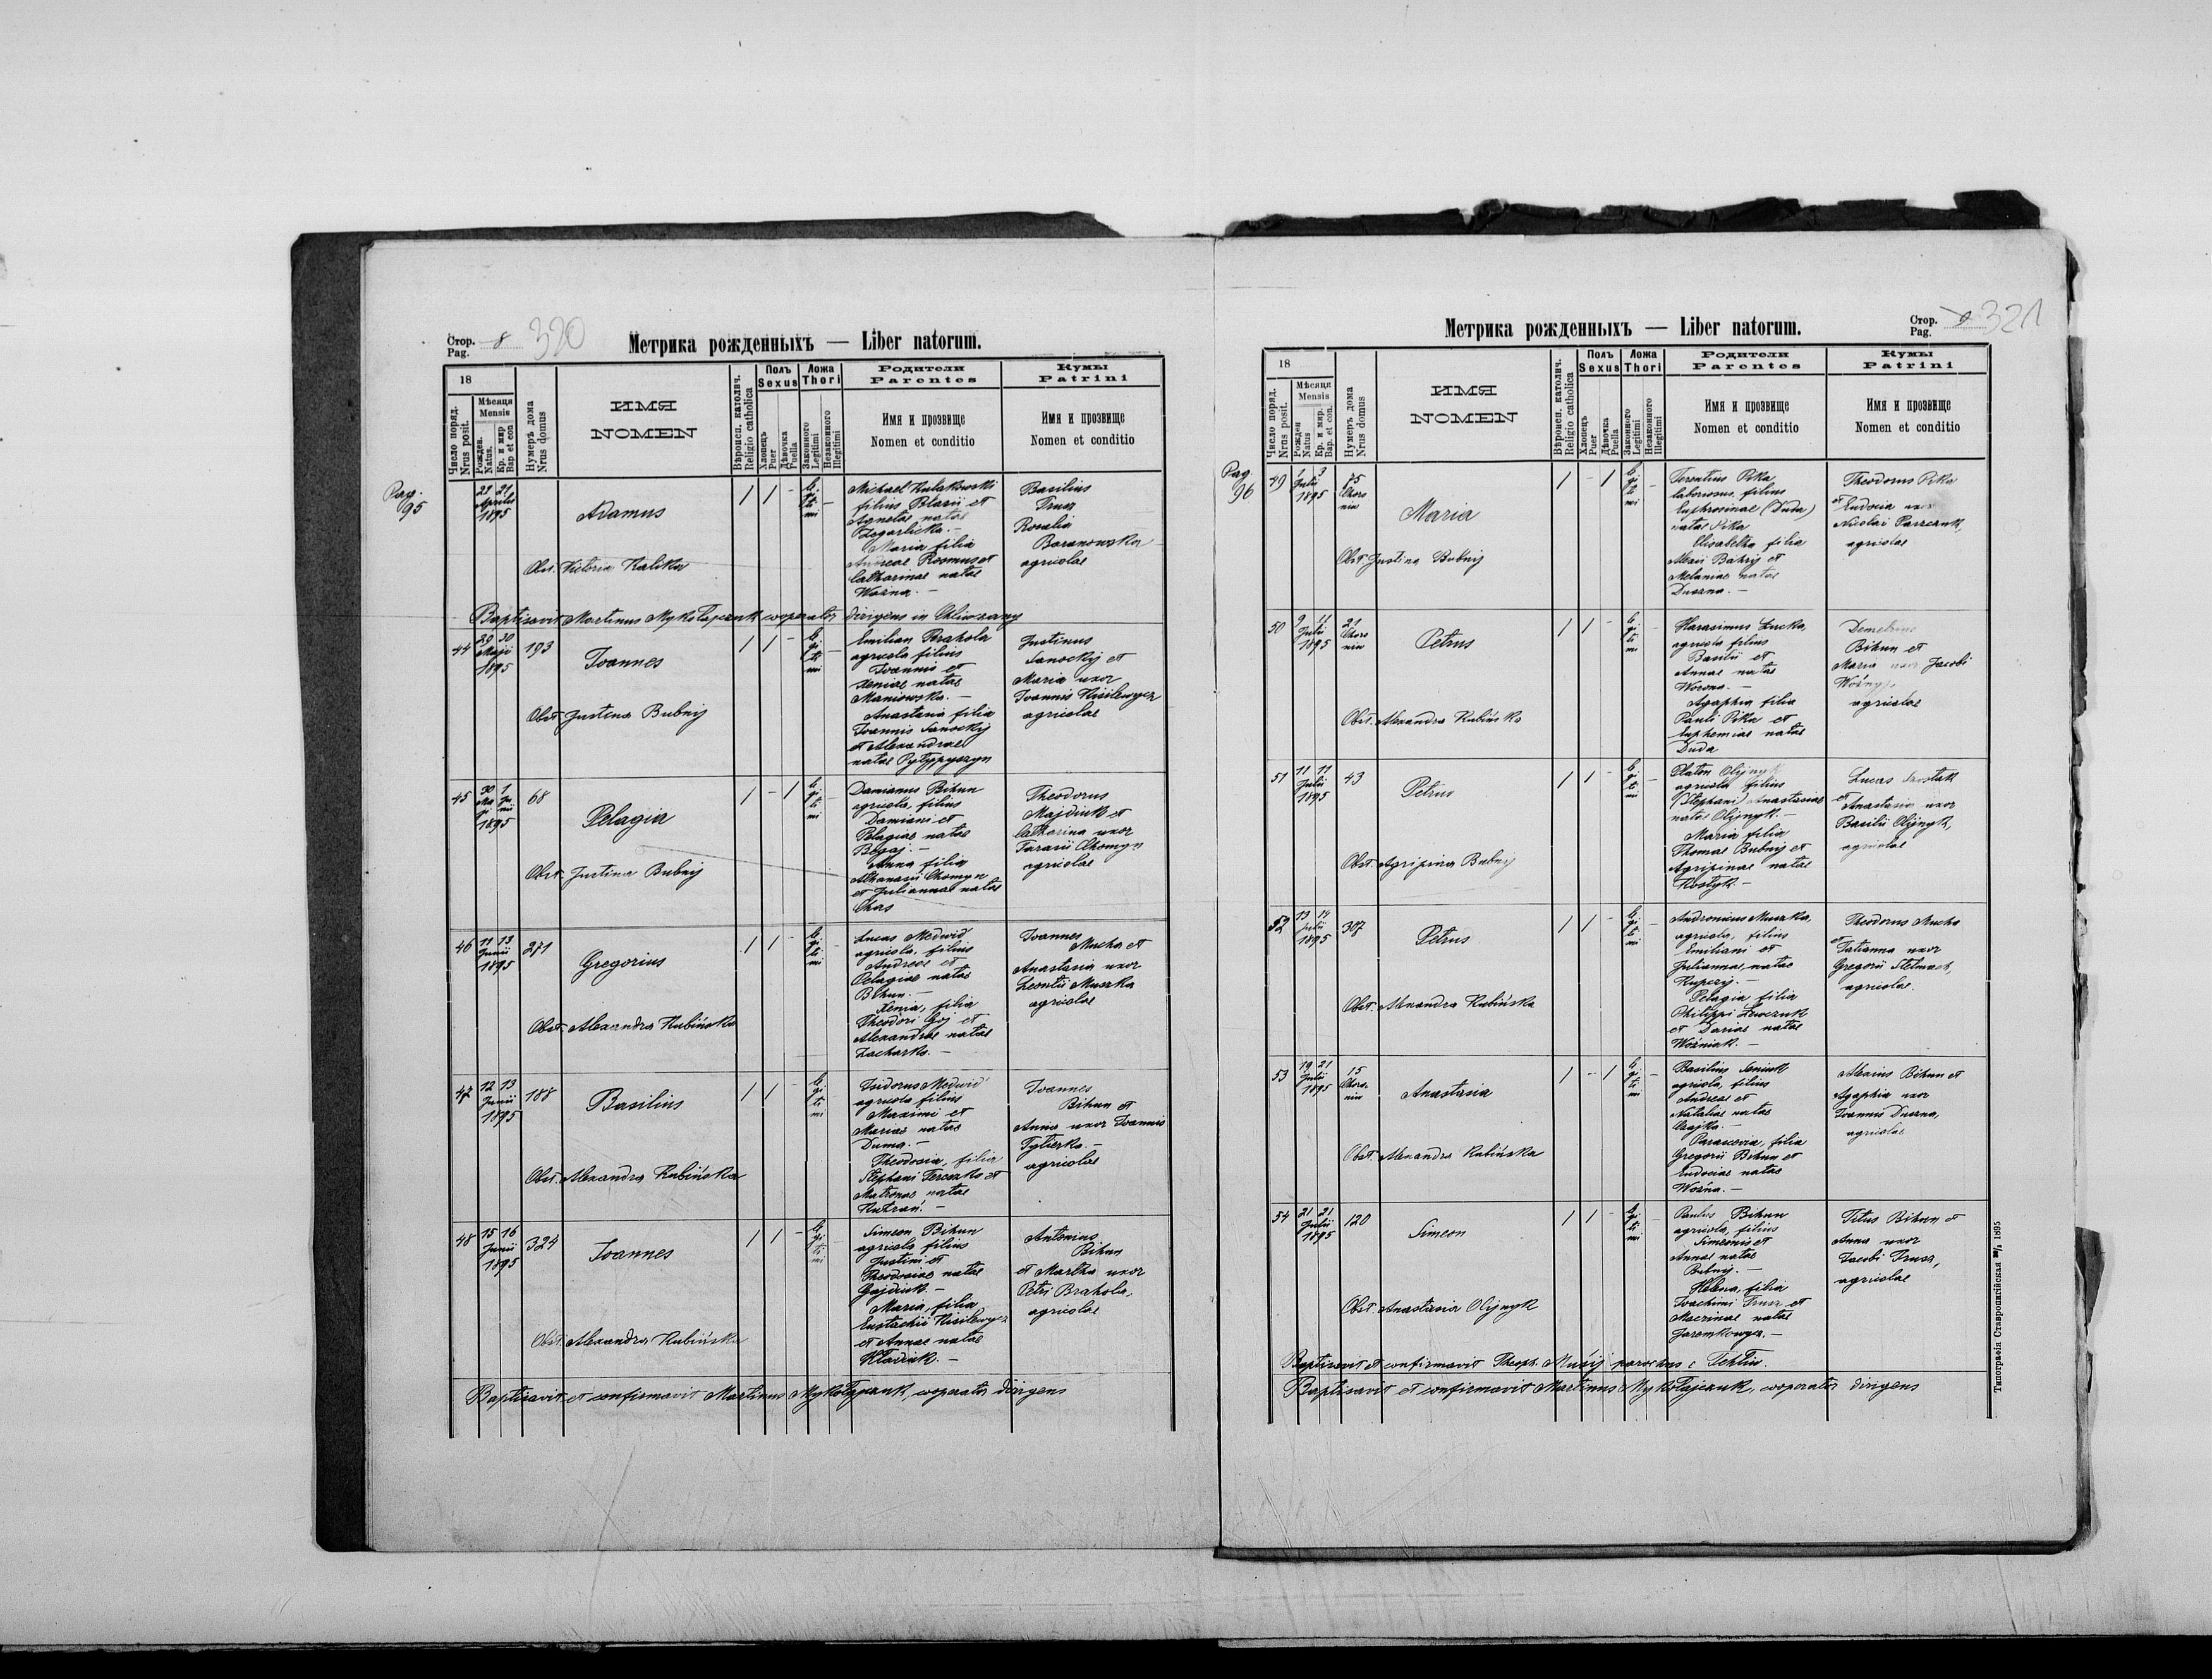 Стор. 8 320
Pag.
Метрика рожденныхъ — Liber natorum.
18
Число поряд.
Nrus posit.
Мѣсяця
Mensis
Рожден.
Natus.
Кр. и мир
Bap et con
Нумеръ дома
Nrus domus
ИМЯ
NOMEN
Вѣроисп. католич.
Religio catholica
Полъ
Sexus
Хлопецъ
Puer
Дѣвочка
Puella
Ложа
Thori
Законного
Legitimi
Незаконного
Illegitimi
Родители
Parentes
Имя и прозвище
Nomen et conditio
Кумы
Patrini
Имя и прозвище
Nomen et conditio
Pag.
95
21 21
Aprilis
1895
Adamus
Obst. Victoria Kalika
1 1 - legitimi -
Michael Kulakowski
filius Blasii et
Agnetae natae
Zegarlicka. -
Maria filia
Andreae Rosmus et
Catharinae natae
Woźna. -
Basilius
Trusz
Rosalia
Baranowska
agricolae
Baptisavit Martinus Mykołajczuk cooperator dirigens in Chliwczany
44
29 30
Maji
1895
193
Joannes
Obst. Justina Bubnij
1 1 - legitimi -
Emilian Parahola
agricola filius
Joannis et
Xeniae natae
Maniowska. -
Anastasia filia
Joannis Sanockij
et Alexandrae
natae Pyłypyszyn
Justinus
Sanockij et
Maria uxor
Joannis Kisilewycz
agricolae
45
30 1
Maji Junii
1895
68
Pelagia
Obst. Justina Bubnij
1 - 1 legitimi -
Damianus Bihun
agricola, filius
Damiani et
Pelagiae natae
Anna filia
Athanasii Chomyn
et Juliannae natae
Theodorus
Majdiuk et
Catharina uxor
Tarasii Chomyn
agricolae
46
11 13
Junii
1895
271
Gregorius
Obst. Alexandra Kubińska
1 1 - legitimi -
Lucas Medwid
agricola, filius
Andreae et
Pelagiae natae
Bihun. -
Xenia, filia
Theodori Goj et
Alexandrae natae
Zacharko. -
Joannes
Mucha et
Anastasia uxor
Leontii Muszka
agricolae
47
12 13
Junii
1895
188
Basilius
Obst. Alexandra Kubińska
1 1 - legitimi
Isidorus Medwid
agricola filius
Maximi et
Mariae natae
Duma. -
Theodosia, filia
Stephani Tereszko et
Matronae natae
Joannes
Bihun et
Anna uxor Joannis
agricolae
48
15 16
Junii
1895
324
Joannes
Obst. Alexandra Kubińska
1 1 - legitimi
Simeon Bihun
agricola filius
Justini et
Theodosiae natae
Gajdiuk. -
Maria, filia
Eustachii Kisilewycz
et Annae natae
Kładiuk. -
Antonius
Bihun
et Martha uxor
Petri Brahola,
agricolae
Baptisavit et confirmavit Martinus Mykołajczuk, cooperator dirigens
Метрика рожденныхъ — Liber natorum.
Стор. 9 321
Pag.
18
Число поряд.
Nrus posit.
Мѣсяця
Mensis
Рожден
Natus
Кр. и мир.
Bap. et con.
Нумеръ дома
Nrus domus
ИМЯ
NOMEN
Вѣроисп. католич.
Religio catholica
Полъ
Sexus
Хлопецъ
Puer
Дѣвочка
Puella
Ложа
Thori
Законного
Legitimi
Незаконного
Illegitimi
Родители
Parentes
Имя и прозвище
Nomen et conditio
Кумы
Patrini
Имя и прозвище
Nomen et conditio
Pag.
96
49
1 3
Julii
1895
75
Maria
Obst. Justina Bubnij
1 - 1 legitimi -
Terentius Pika
laboriosus, filius
Euphrosinae (Duda)
natae Pika
Elisabetha filia
Alexii Bahrij et
Melaniae natae
Duszna. -
Theodorus Pika
et Eudocia uxor
Nicolai Parszuk,
agricolae
50
9 11
Julii
1895
21
Petrus
Obst. Alexandra Kubińska
1 1 - legitimi -
Harasimus Łucka,
agricola filius
Basilii et
Annae natae
Worona. -
Agaphia filia
Pauli Pika et
Euphemiae natae
Duda
Demetrius
Bihun et
Maria uxor Jacobi
Woźnyj,
agricolae
51
11 11
Julii
1895
43
Petrus
Obst. Agripina Bubnij
1 1 - legitimi -
Platon Olijnyk
agricola filius
(Stephani) Anastasiae
natae Olijnyk. -
Maria filia
Thomae Bubnij et
Agripinae natae
Kostyk. -
Lucas Szostak
et Anastasia uxor
Basilii Olijnyk,
agricolae
52
13 14
Julii
1895
307
Petrus
Obst. Alexandra Kubińska
1 1 - legitimi -
Andronicus Muszka,
agricola, filius
Emiliani et
Juliannae, natae
Kupczij. -
Pelagia filia
Philippi Lewczuk
et Dariae natae
Woźniak. -
Theodorus Mucha
et Tatianna uxor
Gregorii Stelmach,
agricolae.
53
19 21
Julii
1895
15
Anastasia
Obst. Alexandra Kubińska
1 - 1 legitimi -
Basilius Seniuk
agricola, filius
Andreae et
Nataliae natae
Czajka. -
Parascevia, filia
Gregorii Bihun et
Eudociae natae
Woźna. -
Alexius Bihun et
Agaphia uxor
Joannis Duszna,
agricolae
54
21 21
Julii
1895
120
Simeon
Obst. Anastasia Olijnyk
1 1 - legitimi -
Paulus Bihun
agricola, filius
Simeonis et
Annae natae
Bubnij. -
Helena, filia
Joachimi Trusz et
Macrinae natae
Jaremkowycz. -
Titus Bihun et
Anna uxor
Jacobi Trusz,
agricolae
Baptisavit et confirmavit Theoph. Musij parochus
Baptisavit et confirmavit Martinus Mykołajczuk, cooperator dirigens
Типографія Ставропигійская 1895